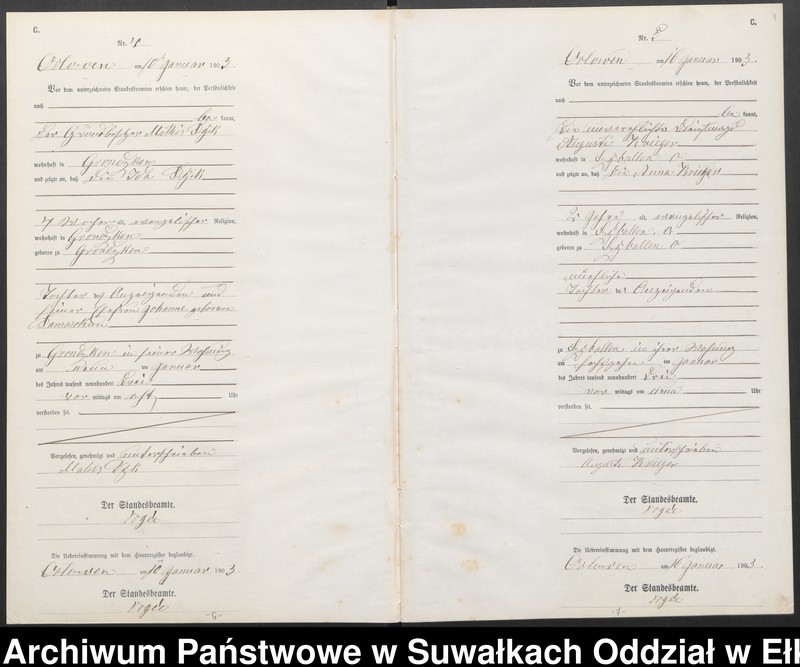 C.
Nr. 4
Orlowen am 10 Januar 1903.
Vor dem unterzeichneten Standesbeamten erschien heute, der Persönlichkeit
nach
be kannt,
der Grundbesitzer
wohnhaft in Grondzken
und zeigte an, daß
4 Wochen a. evangelischer Religion,
wohnhaft in Grondzken
geboren zu Grondzken
Tochter des Anzeigenden und
seiner Ehefrau Johanne geborene
zu Grondzken in seiner Wohnung
am neun ten Januar
des Jahres tausend neunhundert drei
vor mittags um acht Uhr
verstorben sei.
Vorgelesen, genehmigt und unterschrieben
Der Standesbeamte.
Die Uebereinstimmung mit dem Hauptregister beglaubigt.
Orlowen am 10 Januar 1903.
Der Standesbeamte.
C.
Nr. 5
Orlowen am 16 Januar 1903.
Vor dem unterzeichneten Standesbeamten erschien heute, der Persönlichkeit
nach
be kannt,
die unverehelichte Dienstmagd
Auguste Krieger
wohnhaft in
und zeigte an, daß die Anna Krieger
evangelischer Religion,
wohnhaft in
geboren zu
uneheliche
Tochter der Anzeigenden
zu in ihrer Wohnung
am sechszehn ten Januar
des Jahres tausend neunhundert drei
vor mittags um Uhr
verstorben sei.
Vorgelesen, genehmigt und unterschrieben
Auguste Krieger
Der Standesbeamte.
Die Uebereinstimmung mit dem Hauptregister beglaubigt.
Orlowen am 16 Januar 1903.
Der Standesbeamte.
Archiwum Państwowe w Suwałkach Oddział w Eł